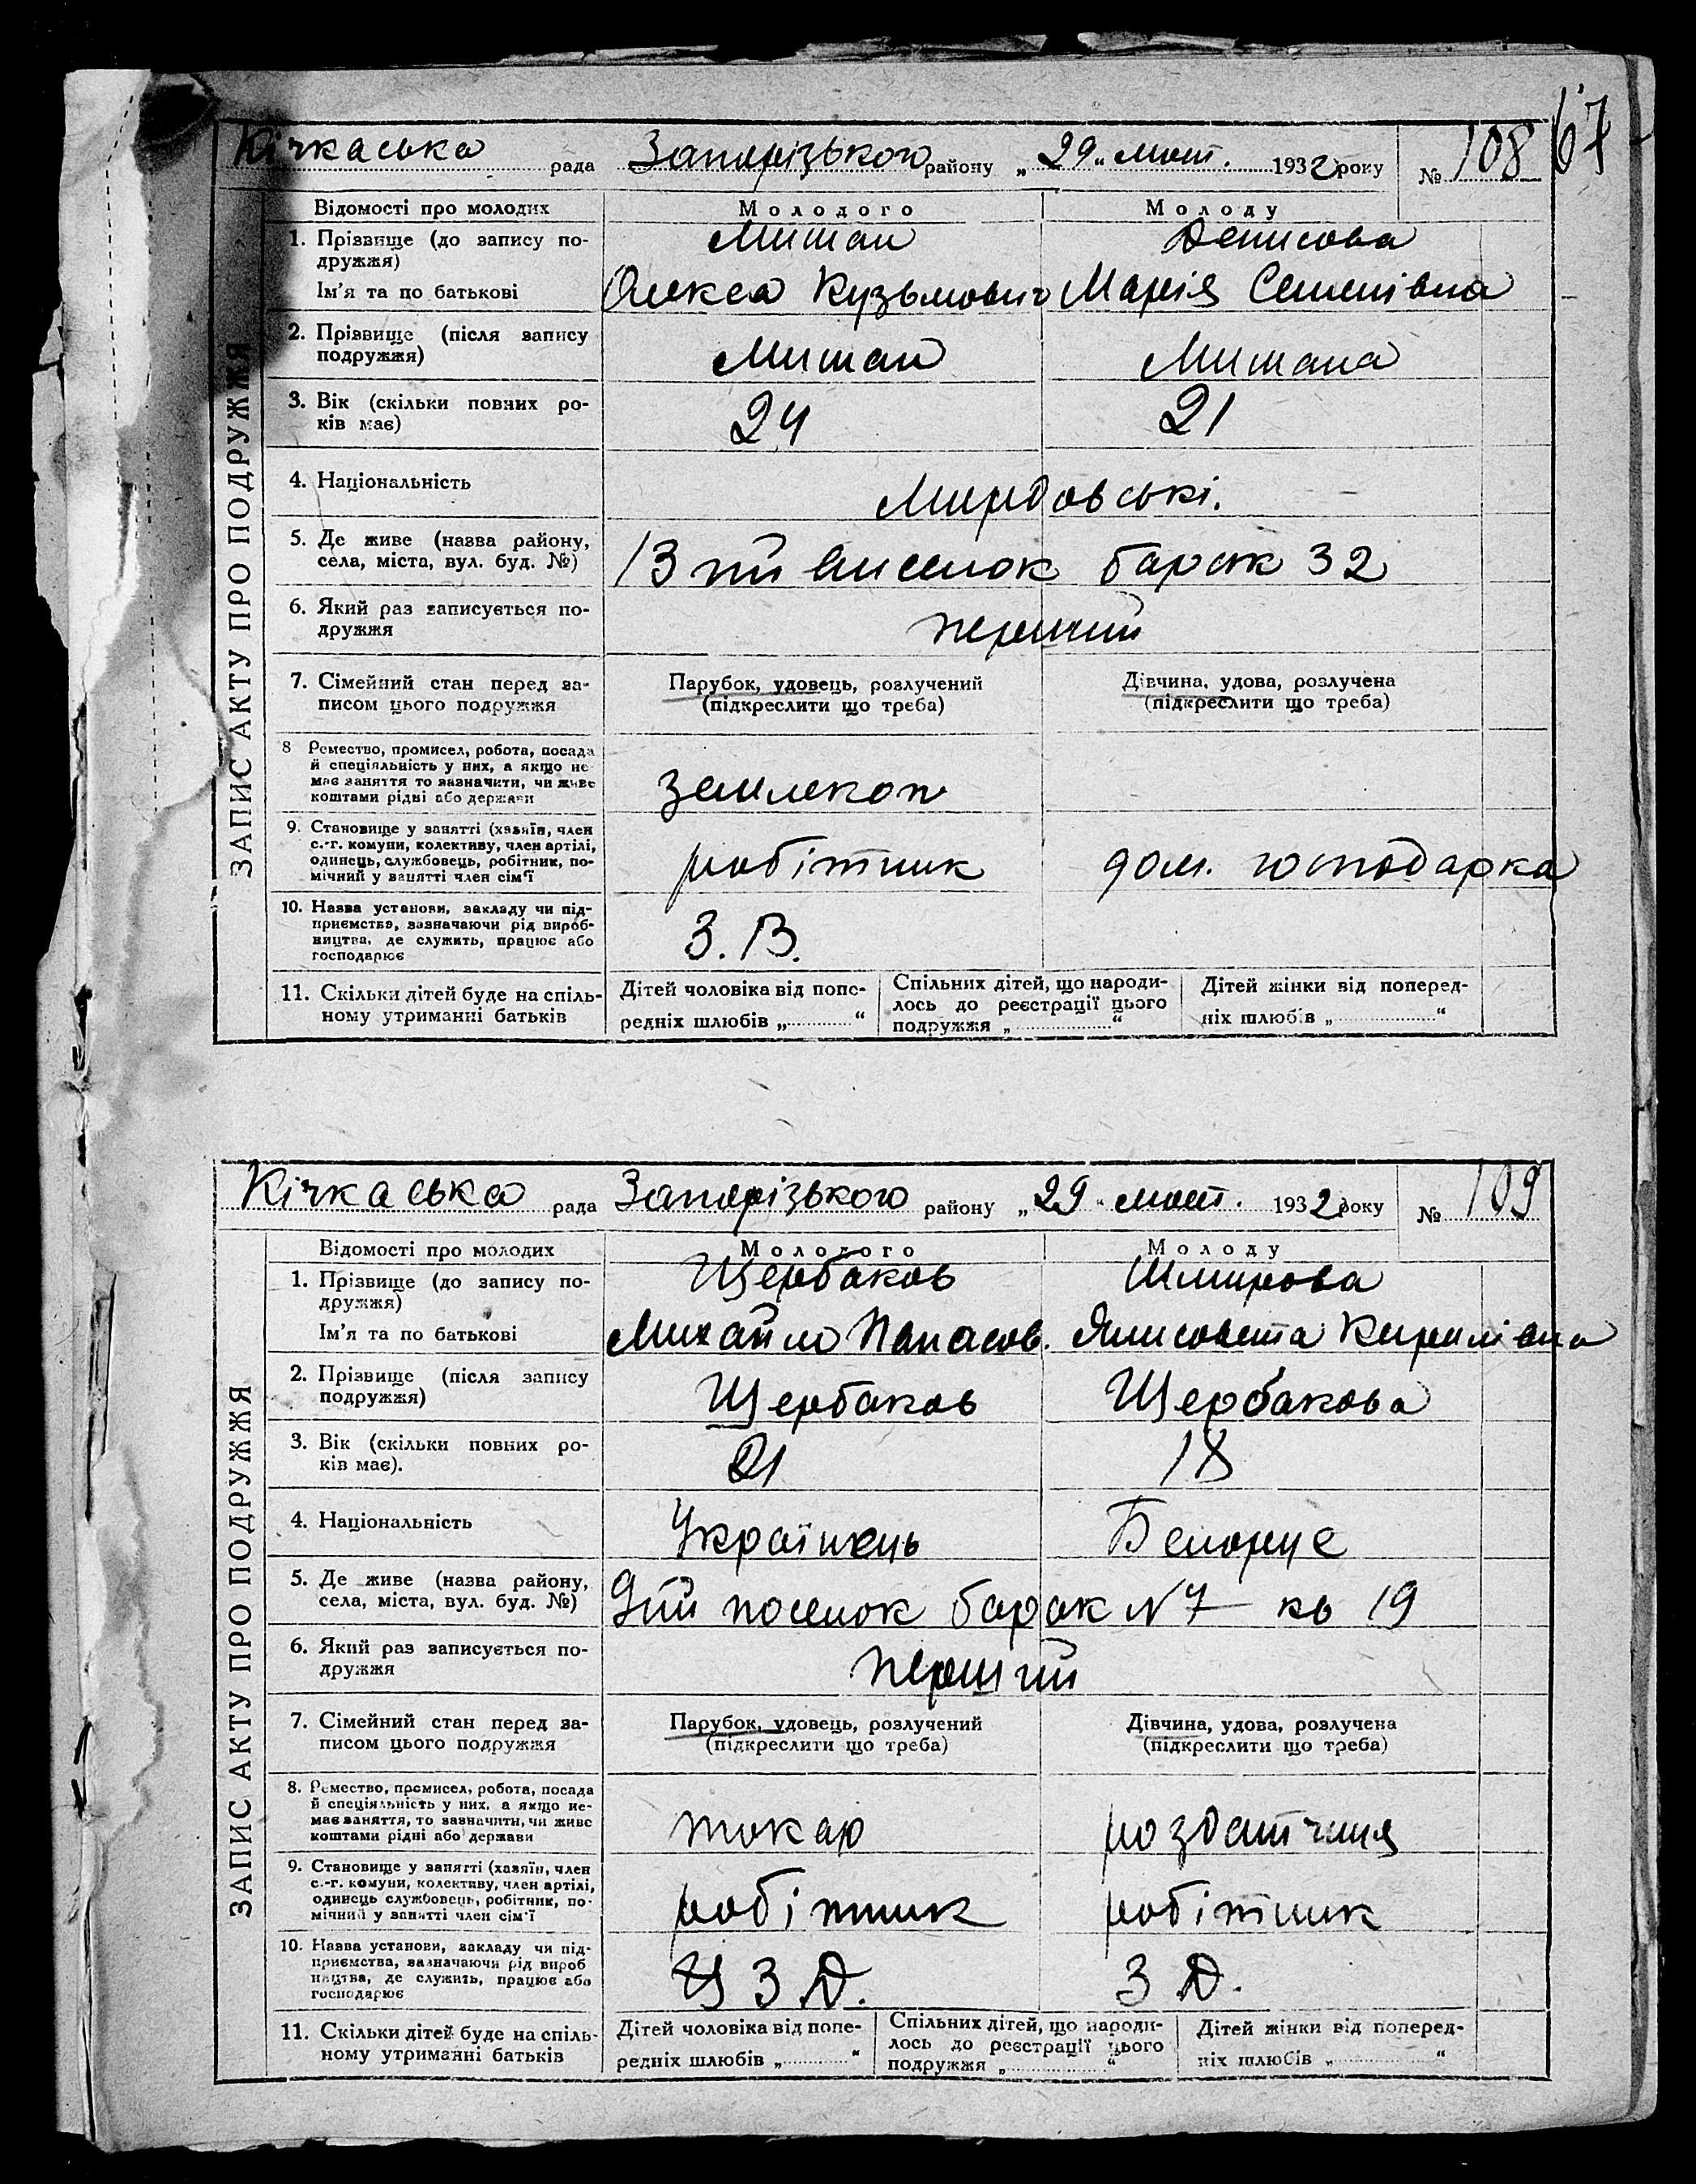 67
Кічкаська рада Запорізького району „29“ лют. 1932 року № 108
ЗАПИС АКТУ ПРО ПОДРУЖЖЯ
Відомості про молодих Молодого Молоду
1. Прізвище (до запису по-
дружжя) Мишан Денисова
Ім'я та по батькові Олекса Кузьмович Марія Семенівна
2. Прізвище (після запису
подружжя) Мишан Мишана
3. Вік (скільки повних ро-
ків має) 24 21
4. Національність Мордовські.
5. Де живе (назва району,
села, міста, вул. буд. №) 13 тий виселок барак 32
6. Який раз записується по-
дружжя перший
7. Сімейний стан перед за- Парубок, удовець, розлучений Дівчина, удова, розлучена
писом цього подружжя (підкреслити що треба) (підкреслити що треба)
8 Ремество, промисел, робота, посада
й спеціяльність у них, а якщо не
має заняття то зазначити, чи живе
коштами рідні або держави землекоп
9. Становище у занятті (хазяїн, член
с.-г. комуни, колективу, член артілі,
одинець, службовець, робітник, по-
мічний у занятті член сім'ї робітник дом. господарка
10. Назва установи, закладу чи під-
приємства, зазначаючи рід вироб-
ництва, де служить, працює або
господарює З. В.
11. Скільки дітей буде на спіль-
ному утриманні батьків
Дітей чоловіка від попе-
редніх шлюбів „ “
Спільних дітей, що народи-
лось до реєстрації цього
подружжя „ “
Дітей жінки від поперед-
ніх шлюбів „ “
Кічкаська рада Запорізького району „29“ лют. 1932 року № 109
ЗАПИС АКТУ ПРО ПОДРУЖЖЯ
Відомості про молодих Молодого Молоду
1. Прізвище (до запису по-
дружжя) Щербаков Шмирова
Ім'я та по батькові Михайло Панасов. Ялисовета Кирилівна
2. Прізвище (після запису
подружжя) Щербаков Щербакова
3. Вік (скільки повних ро-
ків має). 21 18
4. Національність Українець
5. Де живе (назва району,
села, міста, вул. буд. №) 9тий поселок барак N 7 кв 19
6. Який раз записується по-
дружжя перший
7. Сімейний стан перед за- Парубок, удовець, розлучений Дівчина, удова, розлучена
писом цього подружжя (підкреслити що треба) (підкреслити що треба)
8. Ремество, промисел, робота, посада
й спеціяльність у них, а якщо не-
має заняття, то зазначити, чи живе
коштами рідні або держави токар роздатчиця
9. Становище у занятті (хазяїн, член
с.-г. комуни, колективу, член артілі,
одинець службовець, робітник, по-
мічний у занятті член сім'ї робітник робітник
10. Назва установи, закладу чи під-
приємства, зазначаючи рід вироб
ництва, де служить, працює або
господарює З Д. З Д.
11. Скільки дітей буде на спіль-
ному утриманні батьків
Дітей чоловіка від попе-
редніх шлюбів „ “
Спільних дітей, що народи-
лось до реєстрації цього
подружжя „ “
Дітей жінки від поперед-
ніх шлюбів „ “